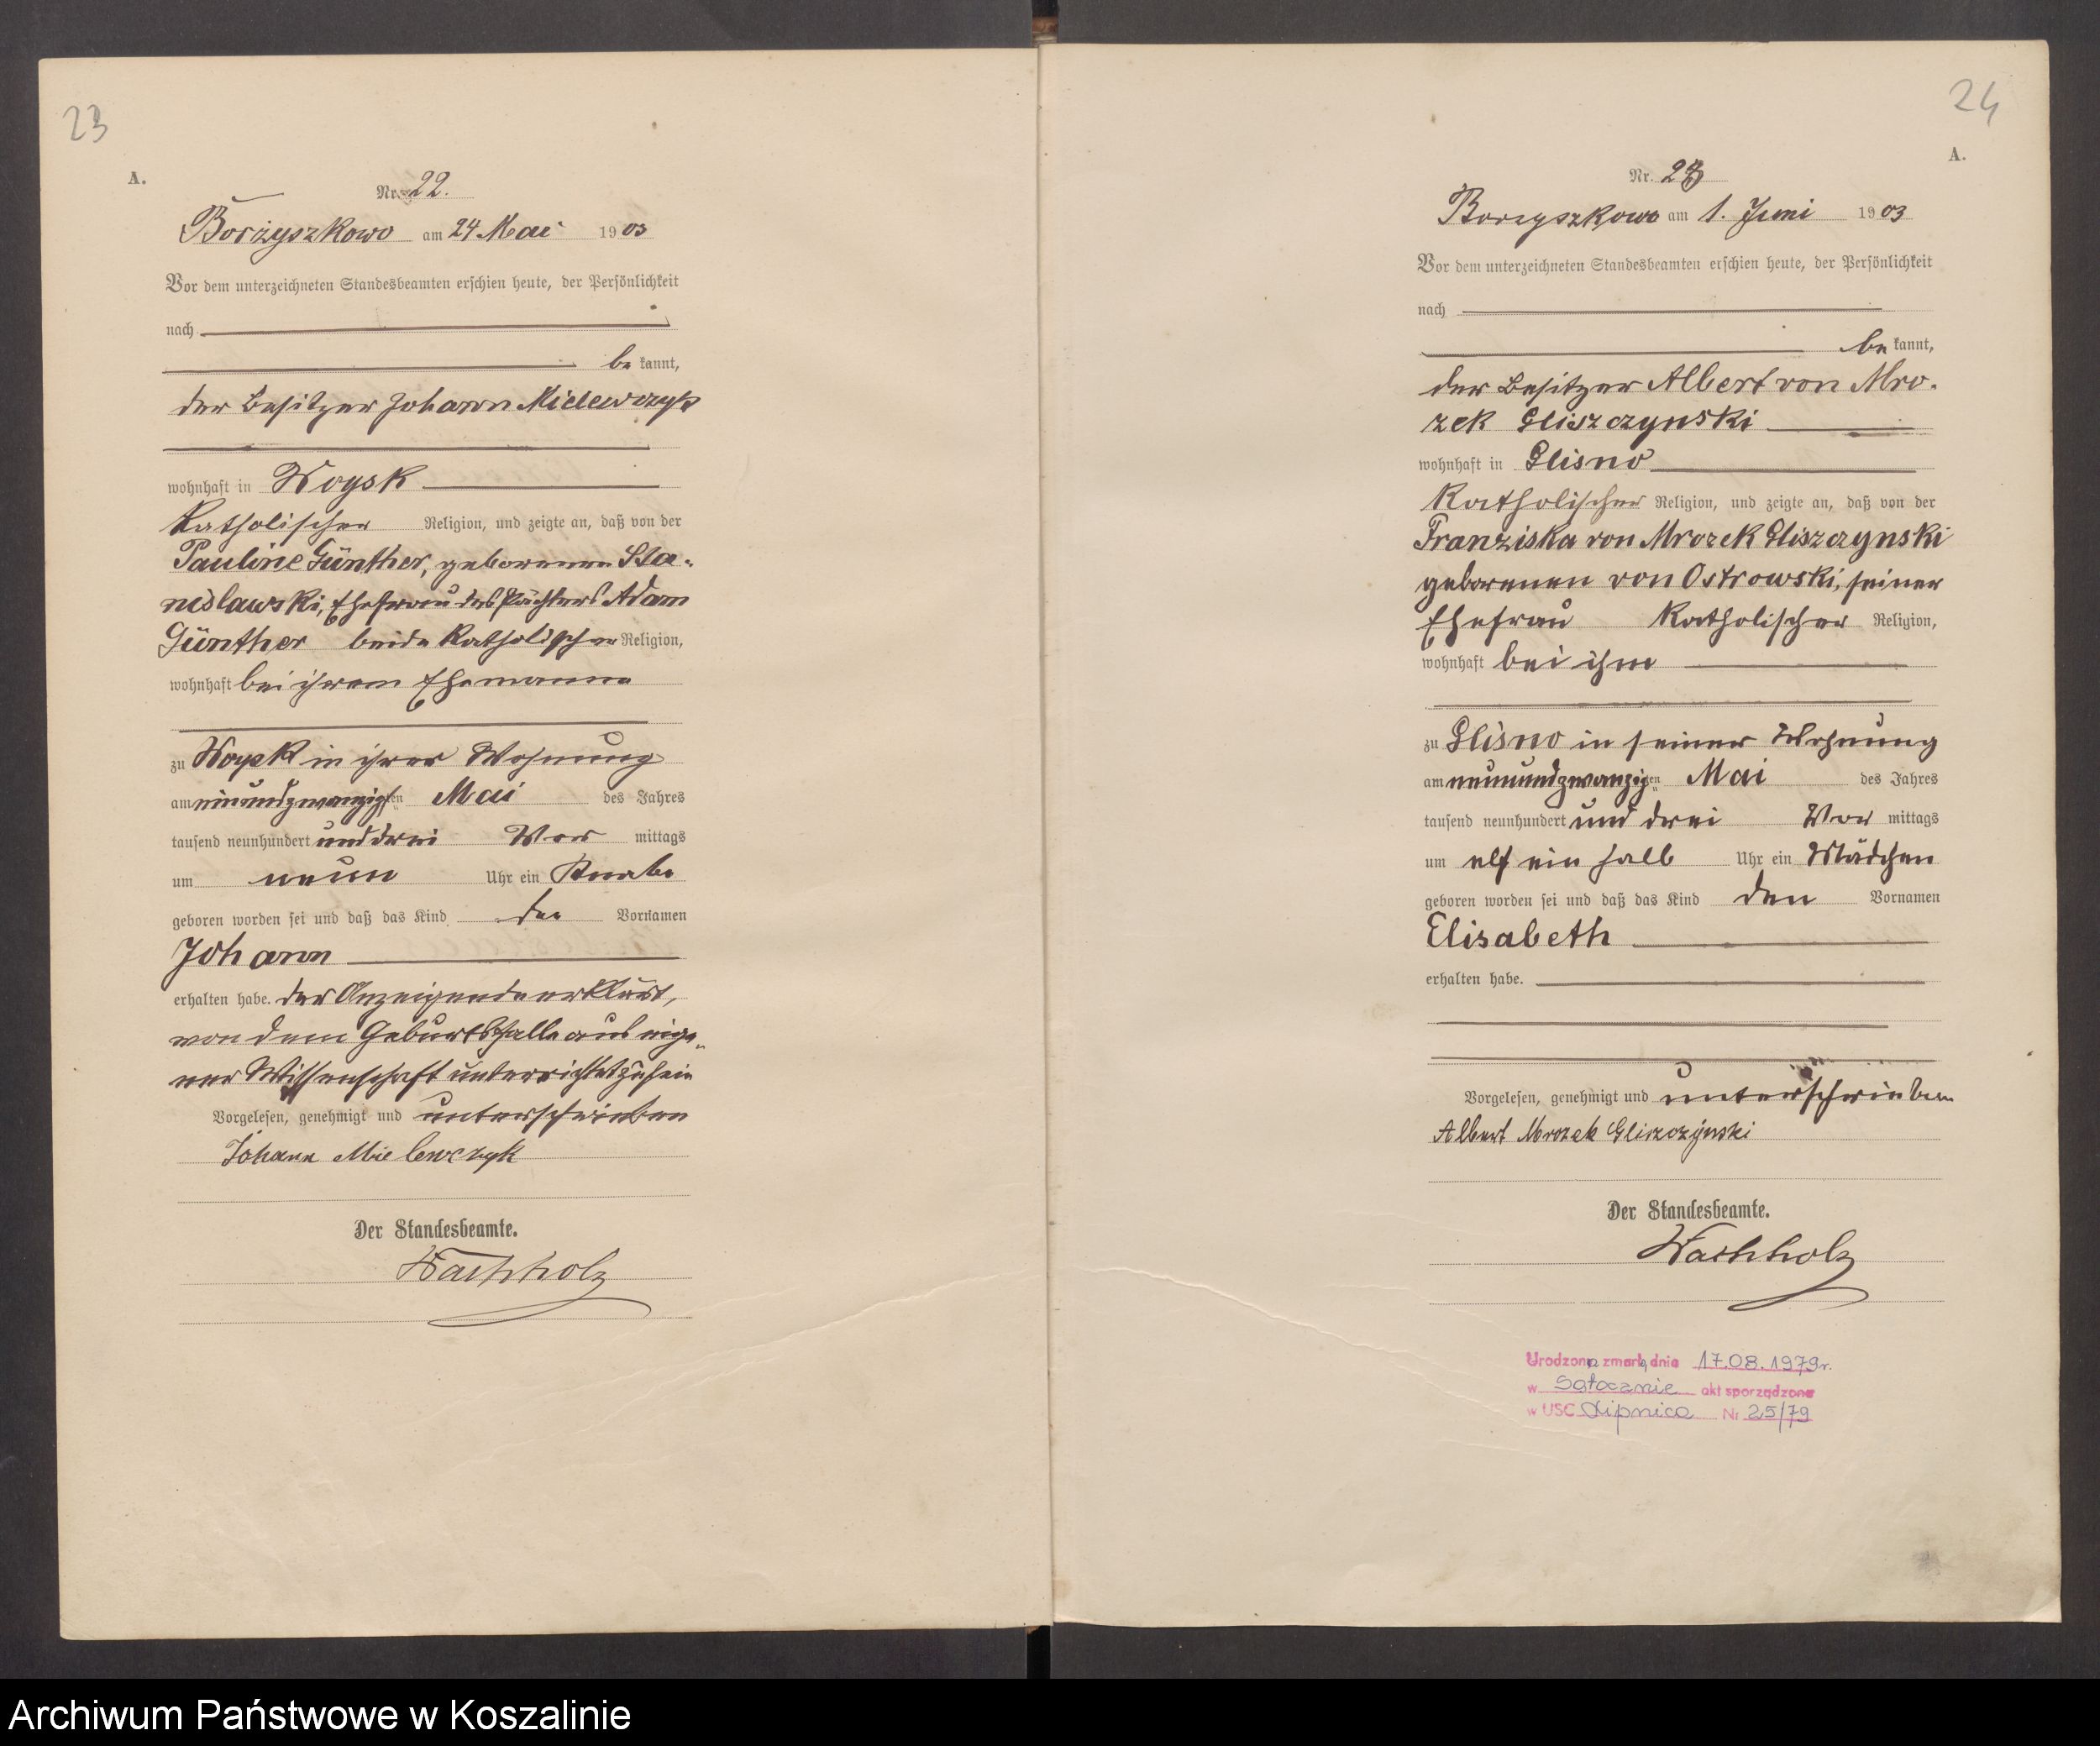 23
A.
Nr. 22.
Borzyszkowo am 24 Mai 1903
Vor dem unterzeichneten Standesbeamten erschien heute, der Persönlichkeit
nach
be kannt,
der Besitzer Johann Mielewczyk
wohnhaft in Woysk
katholischer Religion, und zeigte an, daß von der
Pauline Günther, geborenen Sta-
nislawski, Ehefrau des Pächters Adam
Günther beide katholischer Religion,
wohnhaft bei ihrem Ehemanne
zu Woysk in ihrer Wohnung
am einundzwanzigsten Mai des Jahres
tausend neunhundert und drei Vor mittags
um neun Uhr ein Knabe
geboren worden sei und daß das Kind den Vornamen
Johann
erhalten habe. der Anzeigende erklärt,
von dem Geburtsfalle aus eige-
ner Wissenschaft unterrichtet zu sein
Vorgelesen, genehmigt und unterschrieben
Johann Mielewczyk
Der Standesbeamte.
Wachholz
24
A.
Nr. 23
Borzyszkowo am 1. Juni 1903
Vor dem unterzeichneten Standesbeamten erschien heute, der Persönlichkeit
nach
be kannt,
der Besitzer Albert von Mro-
zek Gliszczynski
wohnhaft in Glisno
katholischer Religion, und zeigte an, daß von der
Franziska von Mrozek Gliszczynski
geborenen von Ostrowski, seiner
Ehefrau katholischer Religion,
wohnhaft bei ihm
zu Glisno in seiner Wohnung
am neunundzwanzigten Mai des Jahres
tausend neunhundert und drei Vor mittags
um elf ein halb Uhr ein Mädchen
geboren worden sei und daß das Kind den Vornamen
Elisabeth
erhalten habe.
Vorgelesen, genehmigt und unterschrieben
Albert Mrozek Gliszczynski
Der Standesbeamte.
Wachholz
Urodzona zmarła dnia 17.08.1979r.
w Sątocznie akt sporządzono
w USC Lipnica Nr 25/79
Archiwum Państwowe w Koszalinie